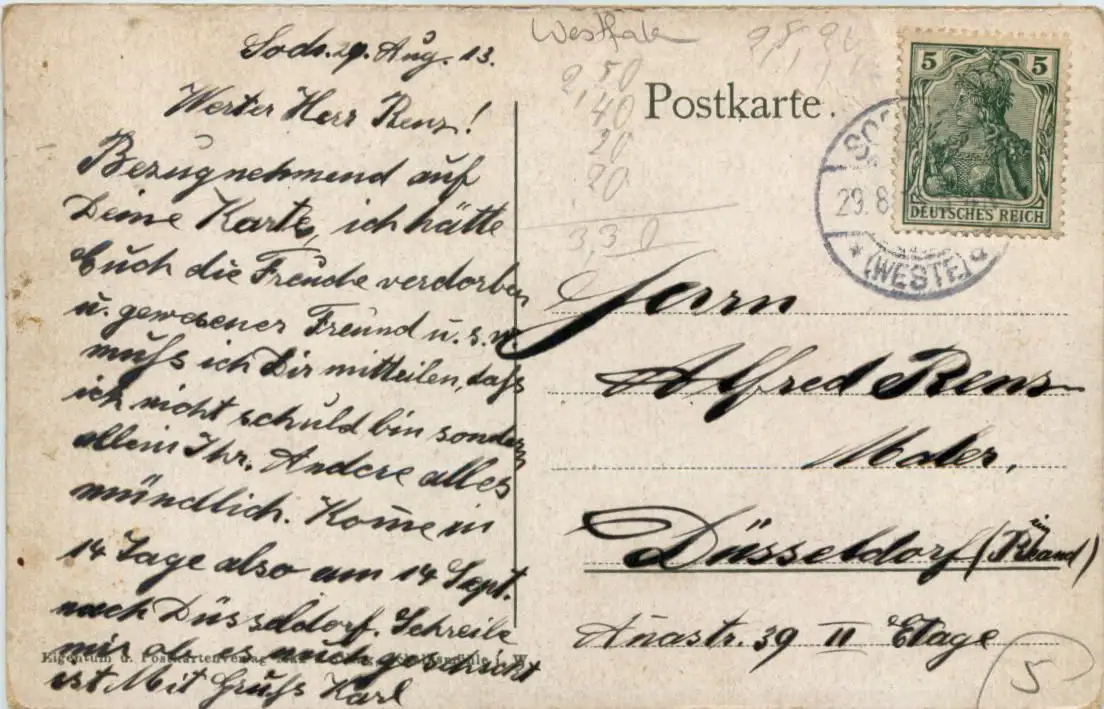 Westfalen
29. Aug. 13.
Werter Herr Renz!
Bezugnehmend auf
Deine Karte, ich hätte
Euch die Freude verdorben
u. gewesener Freund u.s.w.
muß ich Dir mitteilen, daß
ich nicht schuld bin sondern
allein Ihr. Andere alles
mündlich. Kom̄e in
14 Tage also am 14 Sept.
nach Düsseldorf. Schreibe
mir ob es auch
ist Mit Gruß Karl
Eigentum u. Postkartenverlag
2,50
2,40
20
20
3,30
Postkarte.
5 5
DEUTSCHES REICH
29.8
(WESTF.)
Herrn
Alfred Renz
Maler,
Düsseldorf
Anastr. 39 II Etage
5